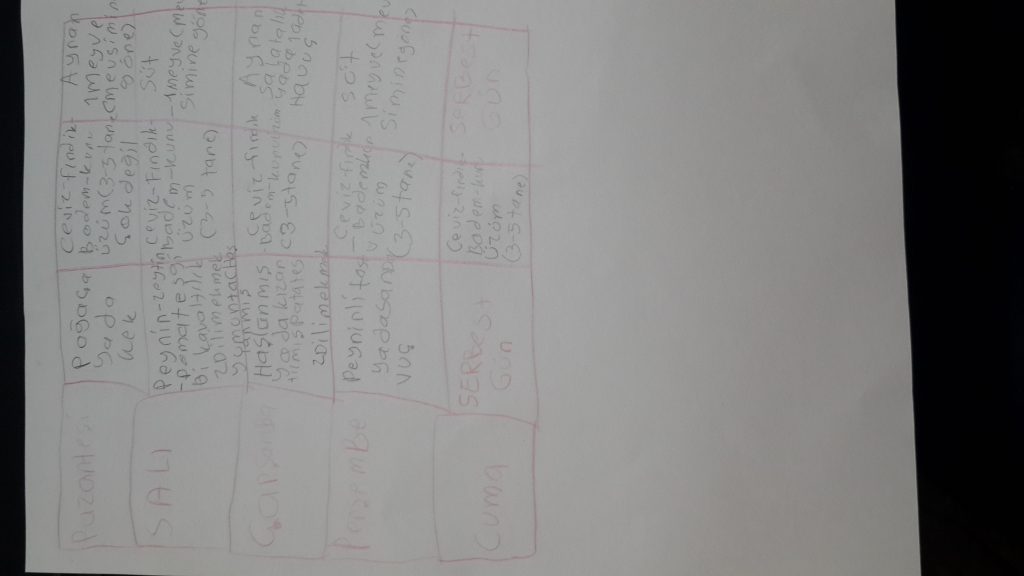 Pazartesi
Poğaça
yada
kek
Ceviz-Fındık-
Badem-kuru
üzüm(3-5tane
çokdeğil
Ayran
1meyve
(mevsimin
göre)
SALI
Peynir-zeytin
-Domates gi
Bi kavaltılık
2Dilimekmek
Ceviz-Fındık
Badem-kuru
üzüm
(3-5 tane)
Süt
-1meyve(mev
simine göre
Çarşamba
Haşlanmış
yadakızar
tımışPatates
2Dilimekmek
Ceviz-Fındık
-Badem-kuru
(3-5tane)
Ayran
yada
Havuç
Perşembe
Peynirlitost
yadasand
viç
-Ceviz-fındık
üzüm
(3-5tane)
süt
1meyve(mev
simine göre)
Cuma
SERBEST
Gün
Ceviz-Fındık
Badem-kuru
üzüm
(3-5tane)
SERBEST
GÜN